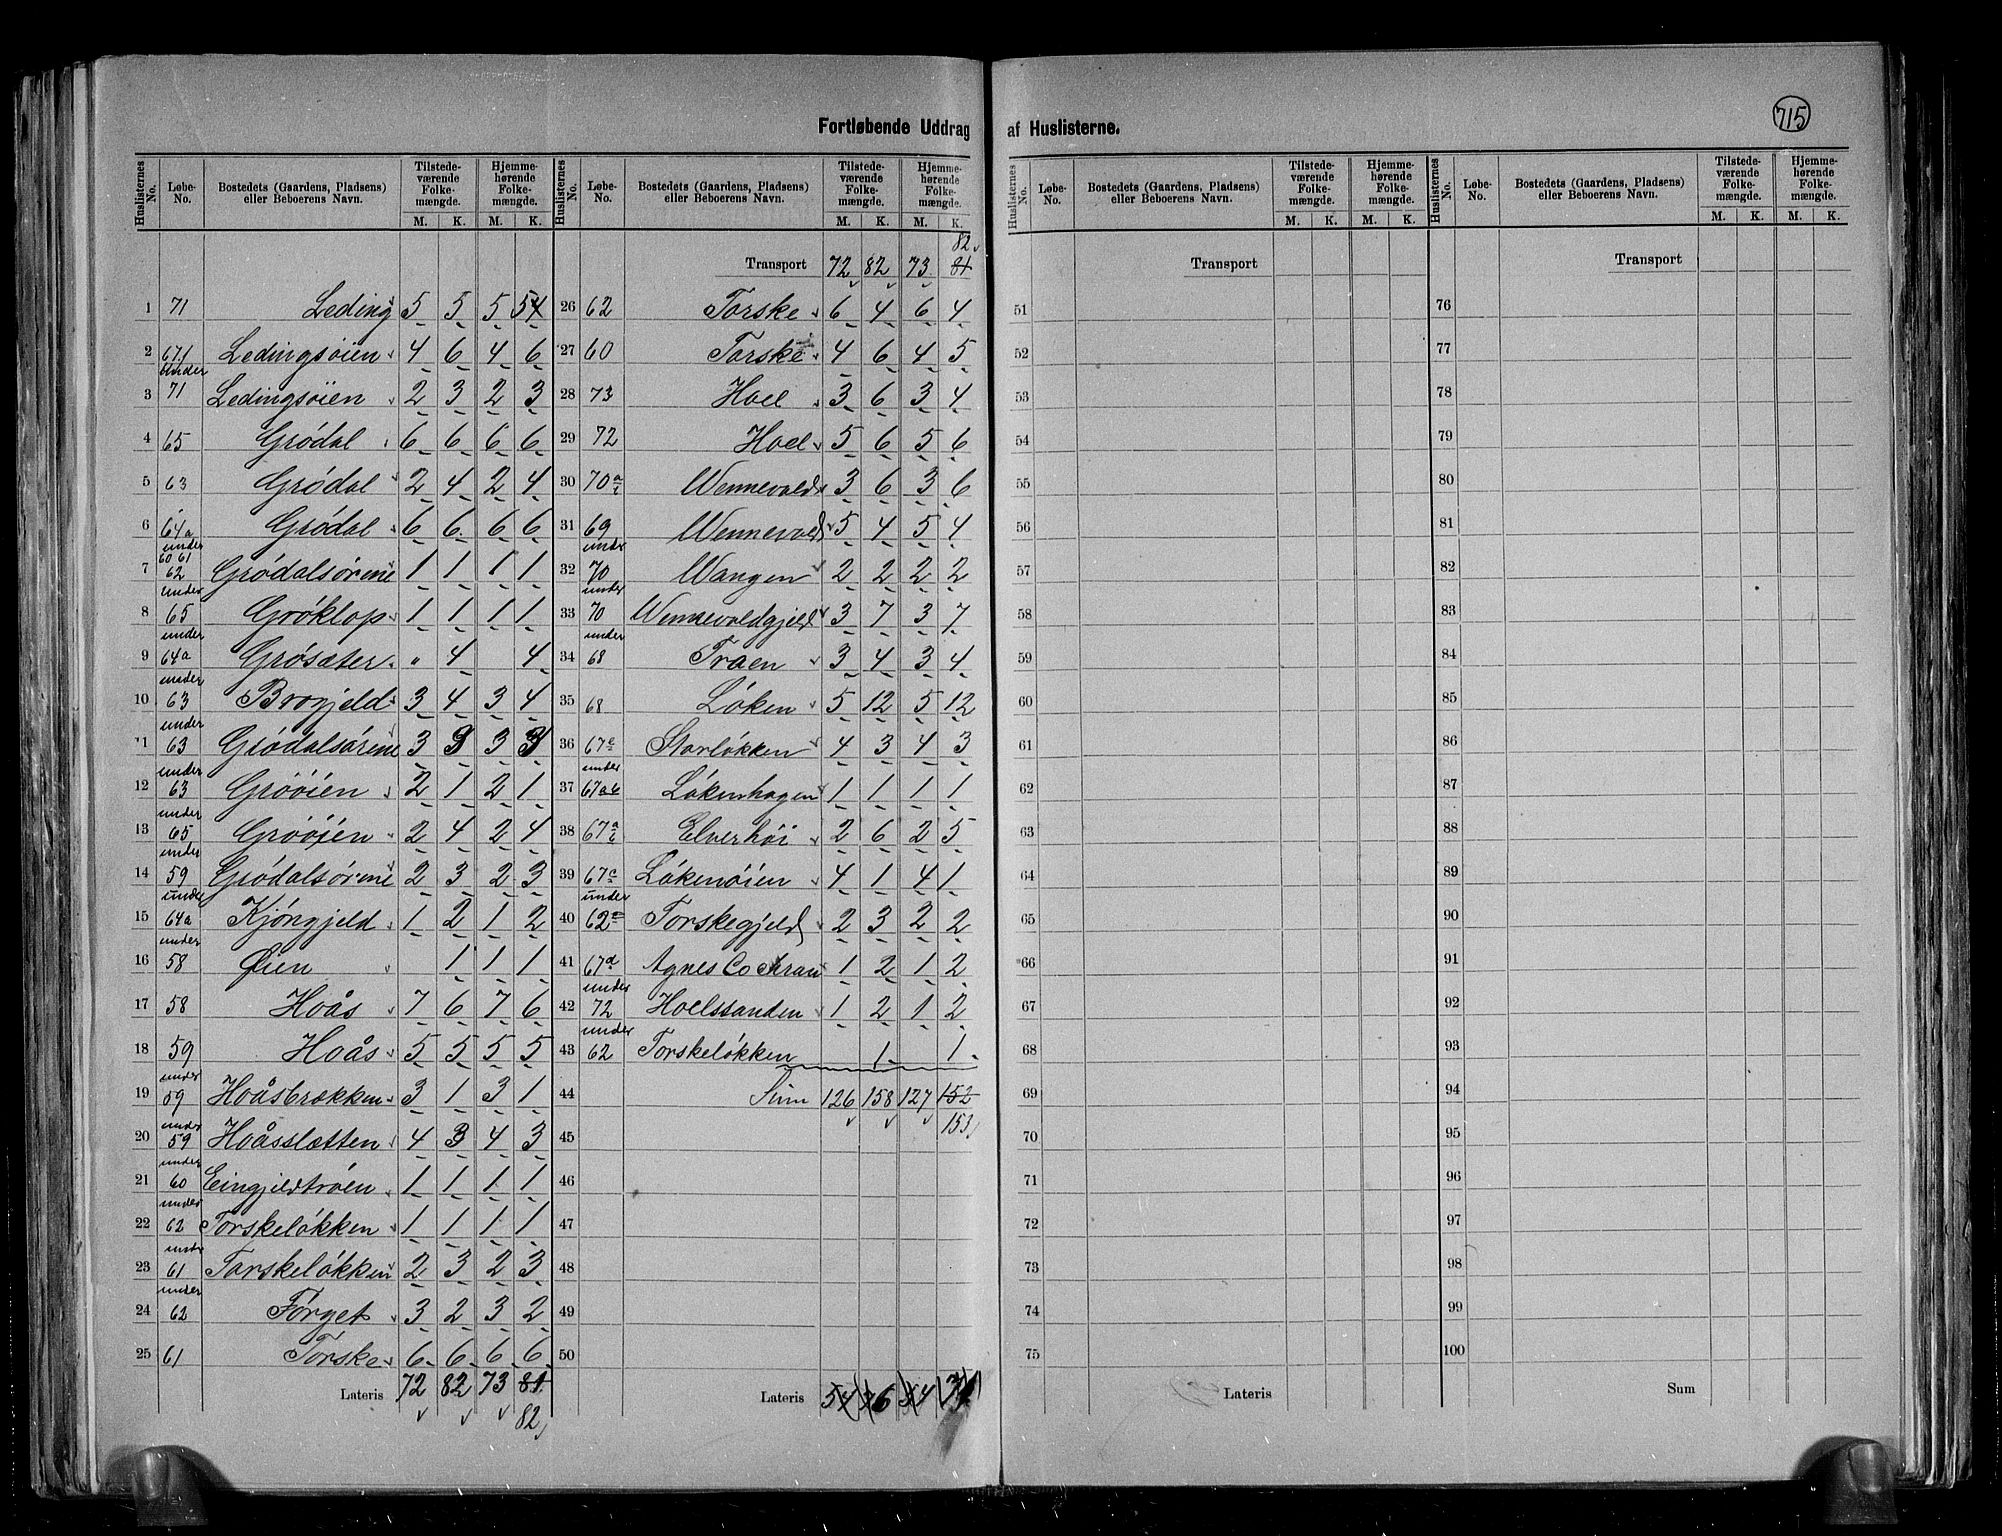 Fortløbende Uddrag af Huslisterne.
715
Huslisternes No. Løbe-No. Bostedets (Gaardens, Pladsens) eller Beboerens Navn. Tilstedeværende Folkemængde. M. K. Hjemmehørende Folkemængde. M. K.
1 71 Leding 5 5 5 5 4
2 67.1 Ledingsøien 4 6 4 6
3 under 71 Ledingsøien 2 3 2 3
4 65 Grødal 6 6 6 6
5 63 Grødal 2 4 2 4
6 64a Grødal 6 6 6 6
7 under 60 61 62 Grødalsørene 1 1 1 1
8 under 65 Grøklop 1 1 1 1
9 under 64a Grøsæter " 4 4
10 under 63 Brogjeld 3 4 3 4
11 under 63 Grødalsørene 3 3 3 3
12 under 63 Grøøien 2 1 2 1
13 under 65 Grøøien 2 4 2 4
14 under 59 Grødalsørene 2 3 2 3
15 under 64a Kjøngjeld 1 2 1 2
16 under 58 Øien 1 1 1
17 58 Hoås 7 6 7 6
18 59 Hoås 5 5 5 5
19 under 59 Hoåsbrækken 3 1 3 1
20 under 59 Hoåsslætten 4 3 4 3
21 under 60 Eingjeldtrøen 1 1 1 1
22 under 62 Torskeløkken 1 1 1 1
23 under 61 Torskeløkken 2 3 2 3
24 under 62 Førget 3 2 3 2
25 61 Torske 6 6 6 6
Lateris 72 82 73 81
82
Huslisternes No. Løbe-No. Bostedets (Gaardens, Pladsens) eller Beboerens Navn. Tilstedeværende Folkemængde. M. K. Hjemmehørende Folkemængde. M. K.
82
Transport 72 82 73 81
26 62 Torske 6 4 6 4
27 60 Torske 4 6 4 5
28 73 Hoel 3 6 3 4
29 72 Hoel 5 6 5 6
30 70a Wennevold 3 6 3 6
31 69 Wennevold 5 4 5 4
32 under 70 Wangen 2 2 2 2
33 under 70 Wennevoldgjeld 3 7 3 7
34 under 68 Traen 3 4 3 4
35 68 Løken 5 12 5 12
36 67e Storløkken 4 3 4 3
37 under 67ab Løkenhagen 1 1 1 1
38 67a Elverhøi 2 6 2 5
39 67c Løkenøien 4 1 4 1
40 under 62 Torskegjeld 2 3 2 2
41 67d Agnes Cochran 1 2 1 2
42 under 72 Hoelssanden 1 2 1 2
43 under 62 Torskeløkken 1 1
44 Sum 126 158 127 152
45 153
46
47
48
49
50
Lateris 54 76 54 71
Huslisternes No. Løbe-No. Bostedets (Gaardens, Pladsens) eller Beboerens Navn. Tilstedeværende Folkemængde. M. K. Hjemmehørende Folkemængde. M. K.
Transport
51
52
53
54
55
56
57
58
59
60
61
62
63
64
65
66
67
68
69
70
71
72
73
74
75
Lateris
Huslisternes No. Løbe-No. Bostedets (Gaardens, Pladsens) eller Beboerens Navn. Tilstedeværende Folkemængde. M. K. Hjemmehørende Folkemængde. M. K.
Transport
76
77
78
79
80
81
82
83
84
85
86
87
88
89
90
91
92
93
94
95
96
97
98
99
100
Sum